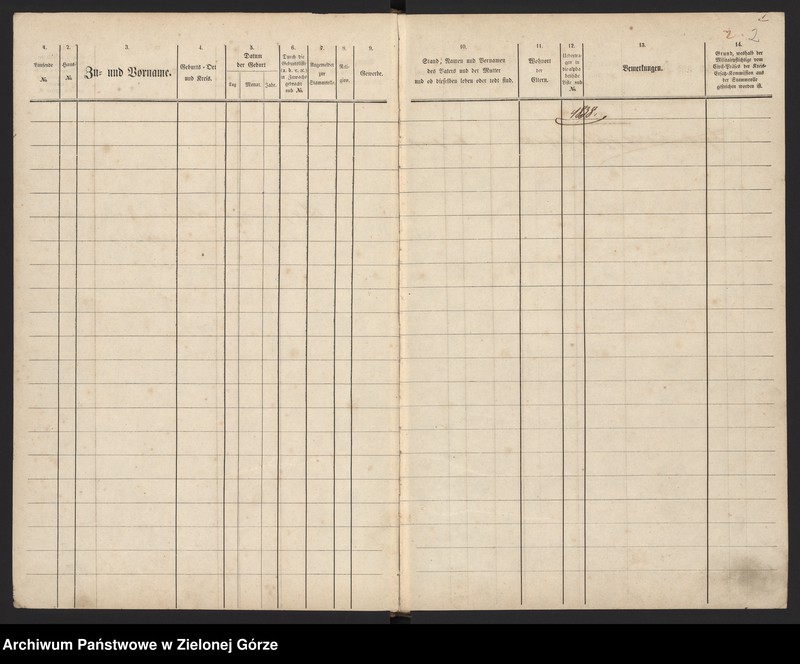 1.
Laufende
№.
2.
Haus-
№.
3.
Zu- und Vorname.
4.
Geburts-Ort
und Kreis.
5.
Datum
der Geburt
Tag
Monat.
Jahr.
6.
Durch die
Geburtsliste
in Zuwachs
gebracht
sub №.
7.
Angemeldet
zur
Stammrolle.
8.
Reli-
gion.
9.
Gewerbe.
10.
Stand, Namen und Vornamen
des Vaters und der Mutter
und ob dieselben leben oder todt sind.
11.
Wohnort
der
Eltern.
12.
Uebertra-
gen in
die alpha-
betische
Liste sub
№.
13.
Bemerkungen.
14.
Grund, weshalb der
Militairpflichtige vom
Civil-Präses der Kreis-
Ersatz-Kommission aus
der Stammrolle
gestrichen worden ist.
2
Archiwum Państwowe w Zielonej Górze